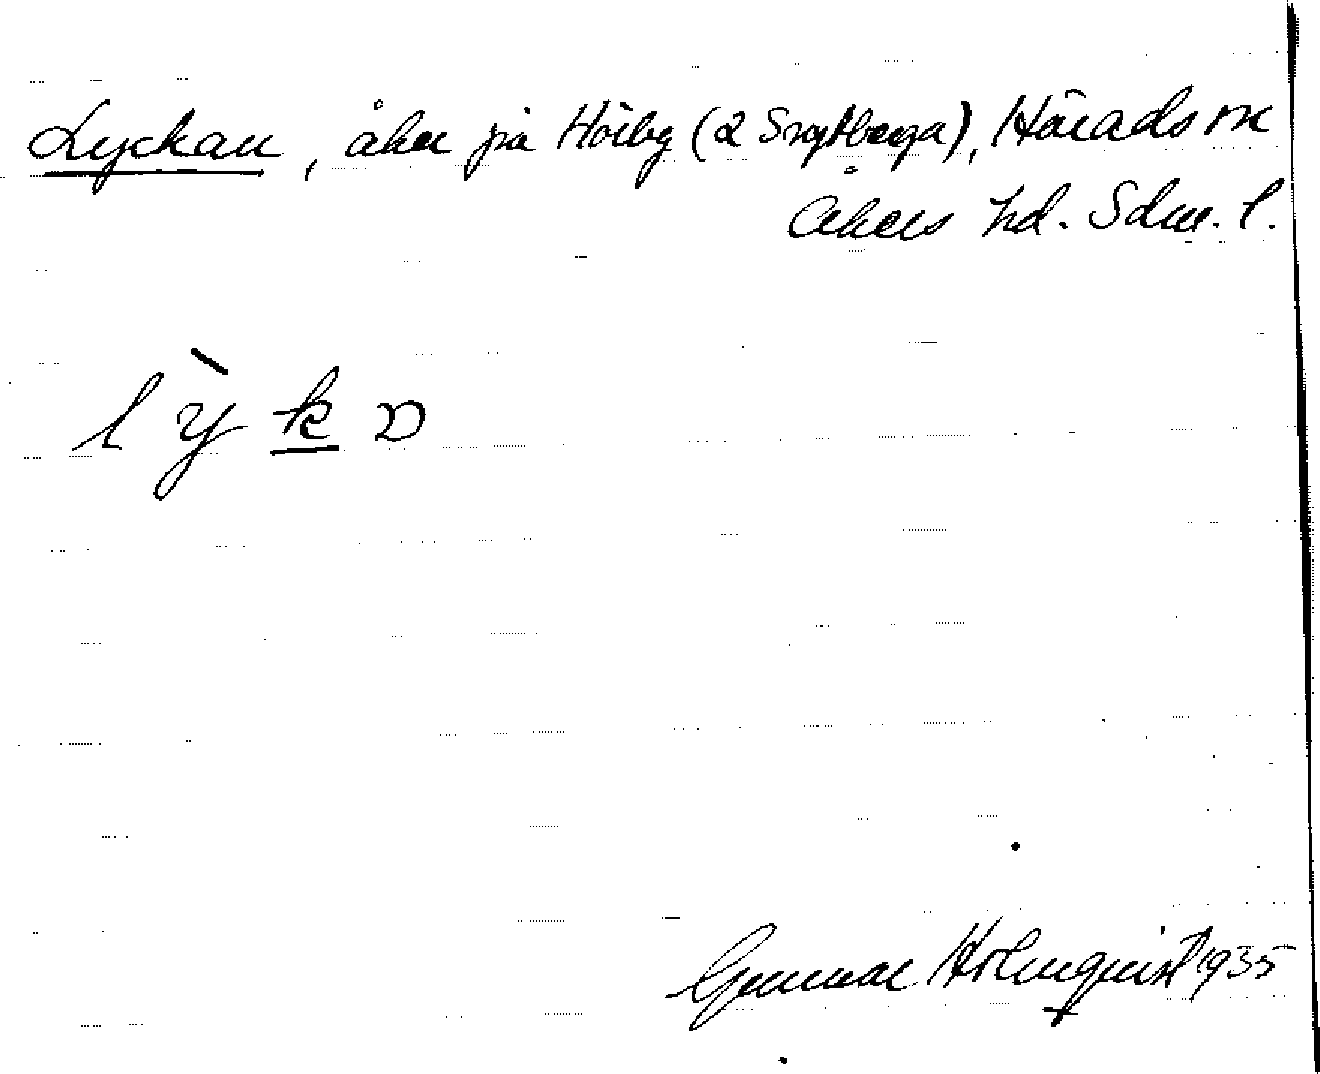 Lyckan, åker på Hörby (2 Snytberga), Härads sn
Åkers hd. Sdm. l.
l ỳ k ɒ
Gunnar Holmquist 1935